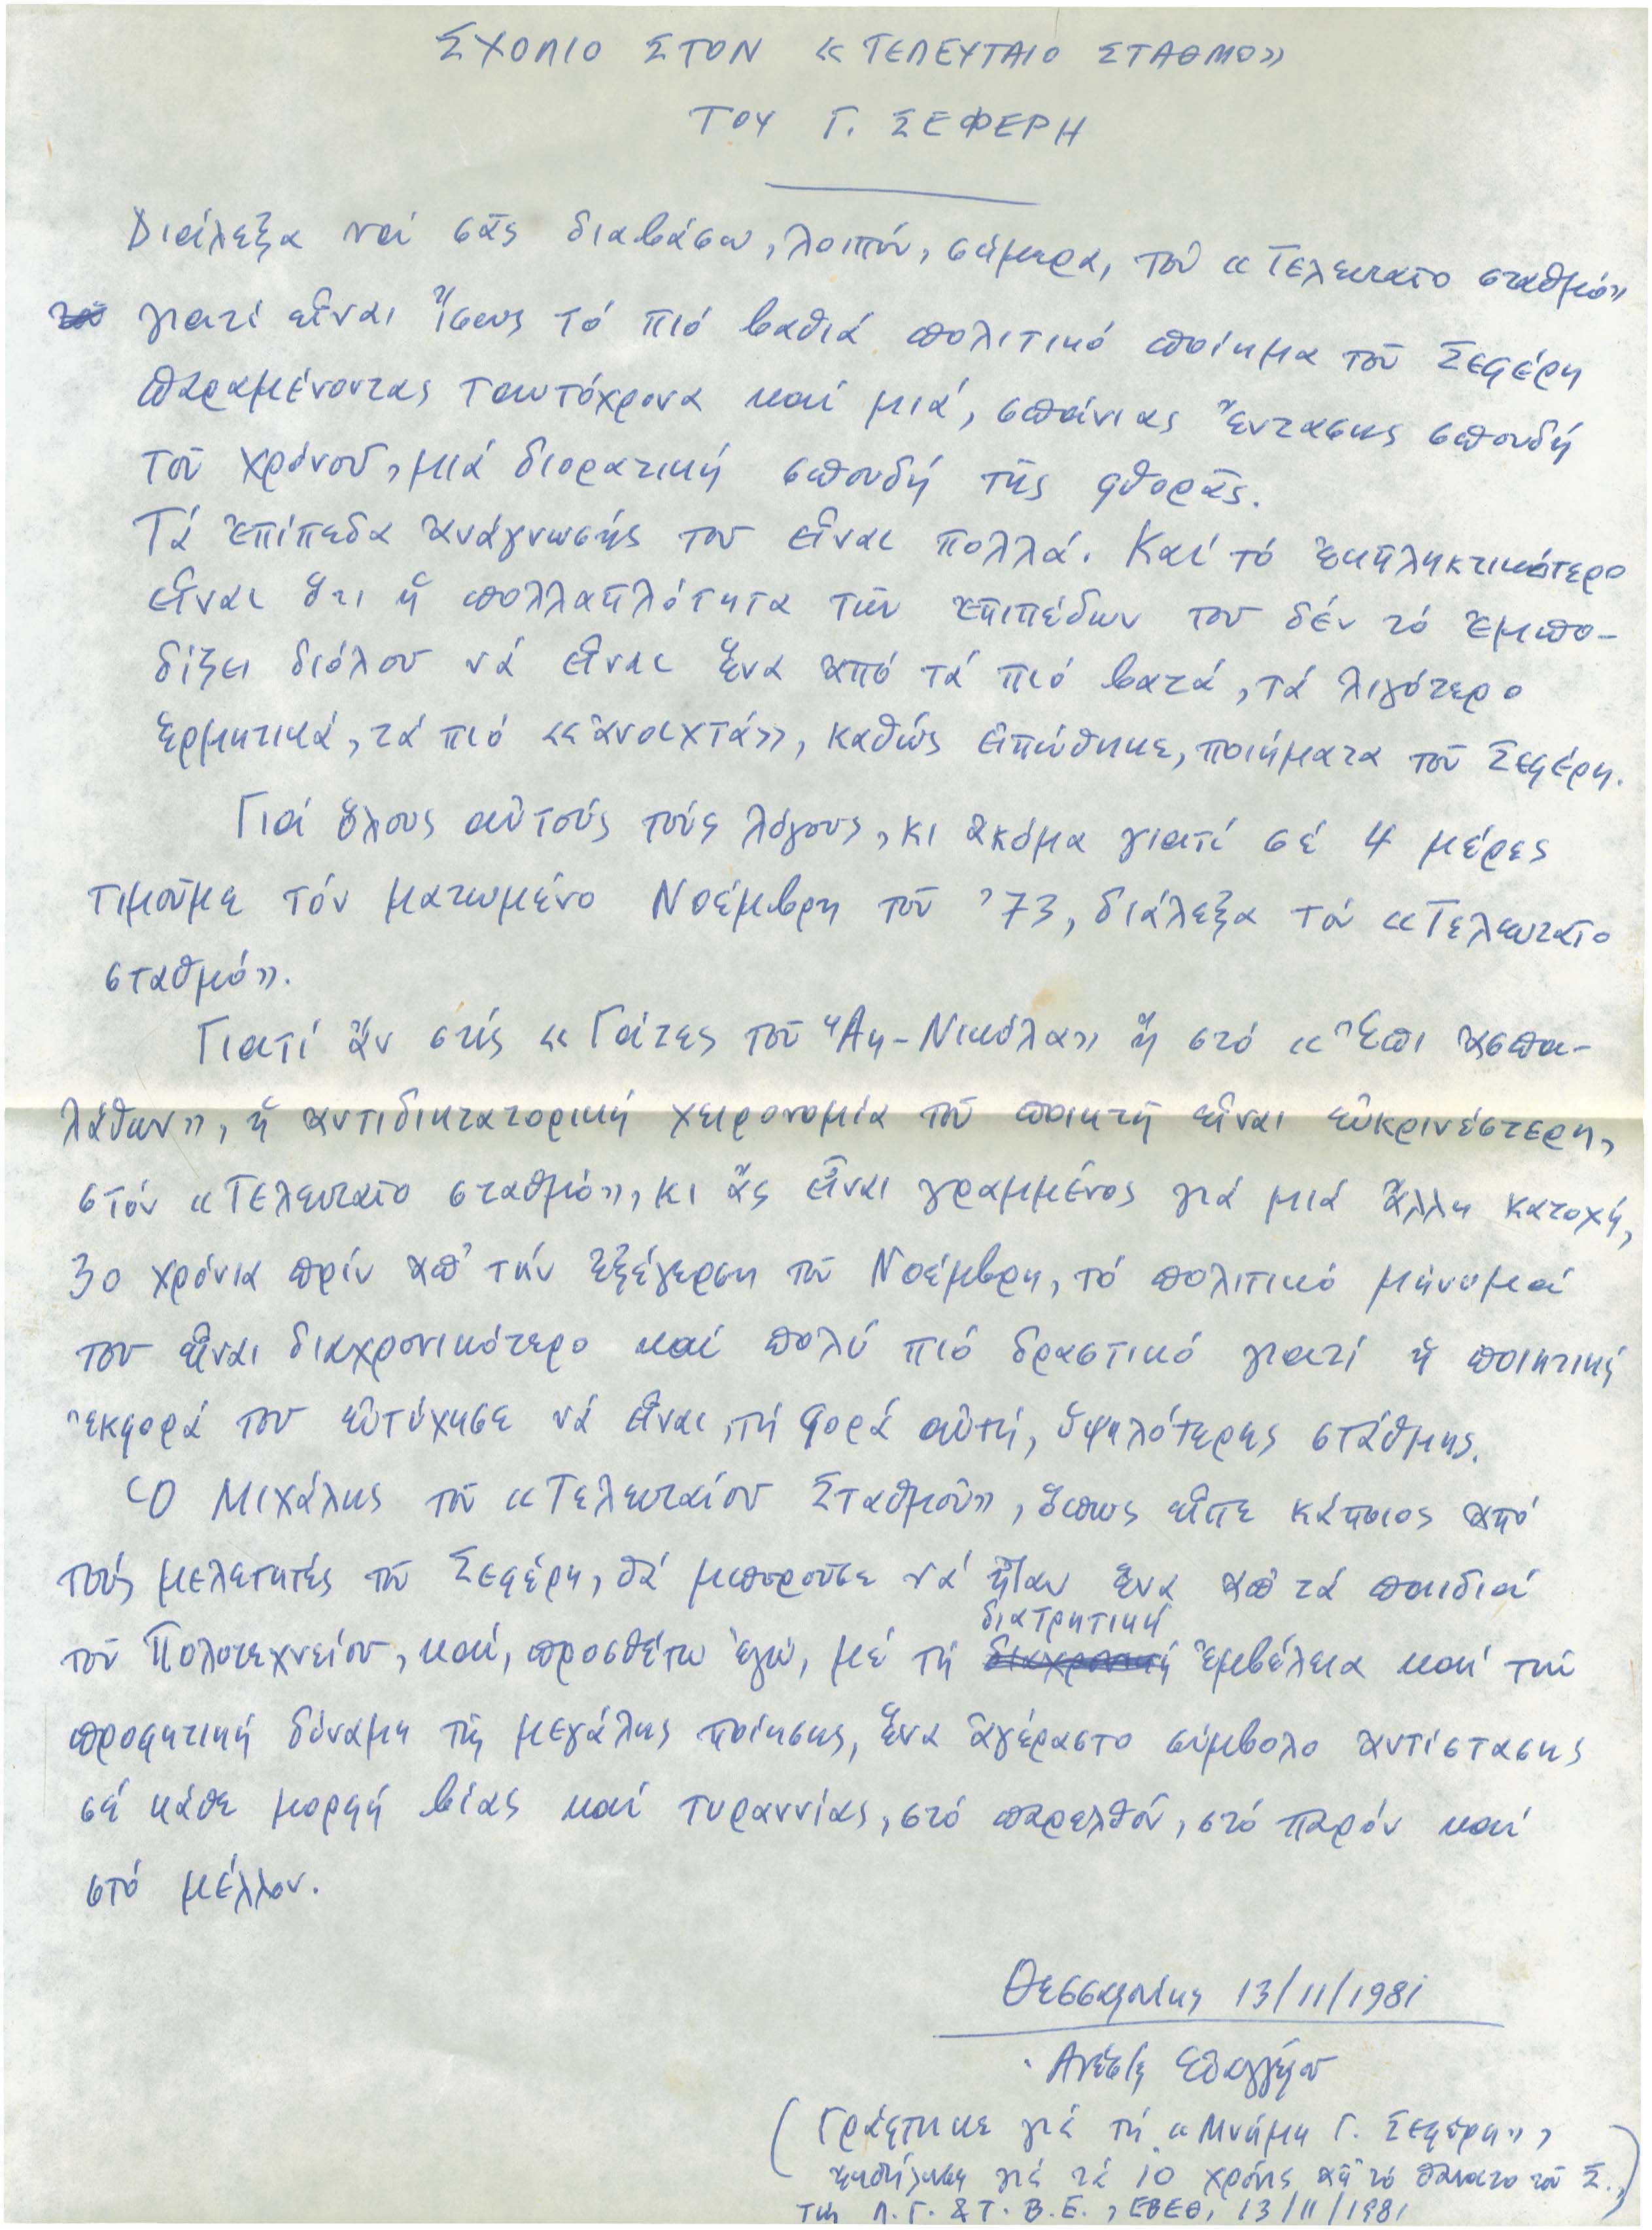 ΣΧΟΛΙΟ ΣΤΟΝ «ΤΕΛΕΥΤΑΙΟ ΣΤΑΘΜΟ»
ΤΟΥ Γ. ΣΕΦΕΡΗ
Διάλεξα νά σᾶς διαβάσω, λοιπόν, σήμερα, τόν «Τελευταῖο σταθμό»
γιατί εἶναι ἴσως τό πιό βαθιά πολιτικό ποίημα τοῦ Σεφέρη
παραμένοντας ταυτόχρονα καί μιά, σπάνιας ἔντασης σπουδή
τοῦ χρόνου, μιά διορατική σπουδή τῆς φθορᾶς.
Τά ἐπίπεδα ἀνάγνωσής του εἶναι πολλά. Καί τό ἐκπληκτικότερο
εἶναι ὅτι ἡ πολλαπλότητα τῶν ἐπιπέδων του δέν τό ἐμπο-
δίζει διόλου νά εἶναι ἕνα ἀπό τά πιό βατά, τά λιγότερο
ἑρμητικά, τά πιό «ἀνοιχτά», καθώς εἰπώθηκε, ποιήματα τοῦ Σεφέρη.
Γιά ὅλους αὐτούς τούς λόγους, κι ἀκόμα γιατί σέ 4 μέρες
τιμοῦμε τόν ματωμένο Νοέμβρη τοῦ ’73, διάλεξα τόν «Τελευταῖο
σταθμό».
Γιατί ἄν στίς «Γάτες τοῦ Ἅη-Νικόλα» ἤ στό «Ἐπί ἀσπα-
λάθων», ἡ ἀντιδικτατορική χειρονομία τοῦ ποιητῆ εἶναι εὐκρινέστερη,
στόν «Τελευταῖο σταθμό», κι ἄς εἶναι γραμμένος γιά μιά ἄλλη κατοχή,
30 χρόνια πρίν ἀπ’ τήν ἐξέγερση τοῦ Νοέμβρη, τό πολιτικό μήνυμά
του εἶναι διαχρονικότερο καί πολύ πιό δραστικό γιατί ἡ ποιητική
ἐκφορά του εὐτύχησε νά εἶναι, τή φορά αὐτή, ὑψηλότερης στάθμης.
Ὁ Μιχάλης τοῦ «Τελευταίου Σταθμοῦ», ὅπως εἶπε κάποιος ἀπό
τούς μελετητές τοῦ Σεφέρη, θά μποροῦσε νά ἦταν ἕνα ἀπ’ τά παιδιά
τοῦ Πολυτεχνείου, καί, προσθέτω ἐγώ, μέ τή διατρητική ἐμβέλεια καί τήν
προφητική δύναμη τῆς μεγάλης ποίησης, ἕνα ἀγέραστο σύμβολο ἀντίστασης
σέ κάθε μορφή βίας καί τυραννίας, στό παρελθόν, στό παρόν καί
στό μέλλον.
Θεσσαλονίκη 13/11/1981
Ἀνέστης Εὐαγγέλου
(Γράφτηκε γιά τή «Μνήμη Γ. Σεφέρη»,
ἐκδήλωση γιά τά 10 χρόνια ἀπ’ τό θάνατο τοῦ Σ.,)
τῆς Λ.Γ. & Τ. Β.Ε., ΕΒΕΘ, 13/11/1981